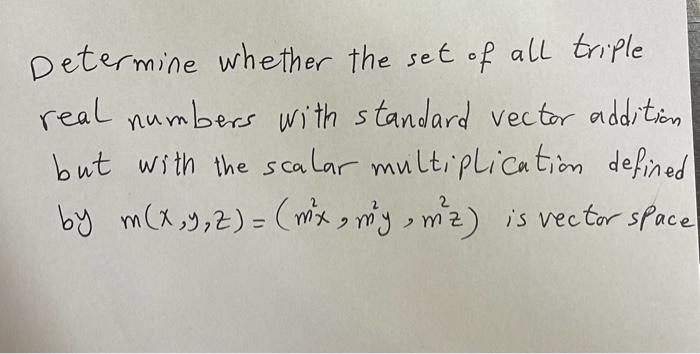 Determine whether the set of all triple
real numbers with standard vector addition
but with the scalar multiplication defined
by m(x,y,z) = (m²x, m²y, m²z) is vector space